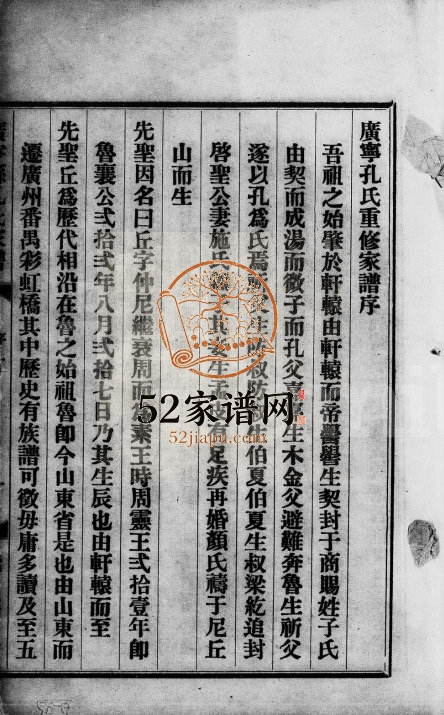 廣寧孔氏重修家譜序
吾祖之始肇於軒轅由軒轅而帝嚳嚳生契封于商賜姓子氏
由契而成湯而微子而孔父嘉生木金父避難奔魯生祈父
遂以孔為氏焉祈父生防叔防叔生伯夏伯夏生叔梁紇追封
啓聖公妻施氏其妾生孟皮有足疾再婚顏氏禱于尼丘
山而生
先聖因名曰丘字仲尼繼衰周而為素王時周靈王弍拾壹年即
魯襄公弍拾弍年八月弍拾七日乃其生辰也由軒轅而至
先聖丘為歷代相沿在魯之始祖魯即今山東省是也由山東而
遷廣州番禺彩虹橋其中歷史有族譜可徵毋庸多讀及至五
52家谱网
52jiapu.com